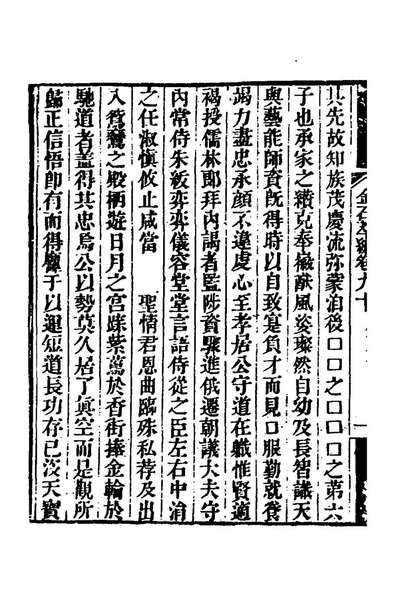 其先故知族茂慶流弥蒙洎後□□之□□□之第六
子也承家之纘克奉徽猷風姿璨然自幼及長智識天
與藝能師資既得時以自致寔負才而見□服勤就養
竭力盡忠承顏不違虔心至孝居公守道在職惟賢適
褐授儒林郎拜內謁者監陟資驟進俄遷朝議大夫守
內常侍朱紱弈弈儀容堂堂言語侍從之臣左右中涓
之任淑愼攸止咸當 聖情君恩曲臨殊私荐及出
入鴛鸞之殿栖遊日月之宮蹀紫篤於香街捧金輪於
馳道者蓋得其忠焉公以勢莫久居了眞空而是觀所
歸正信悟卽有而得譽于以遐短道長功存已沒天寶
金石萃編卷九十